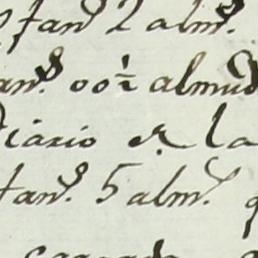 fan.s 2 alm.s
an.s 00½ almud
iario e. la
fan.s 5 alm.s